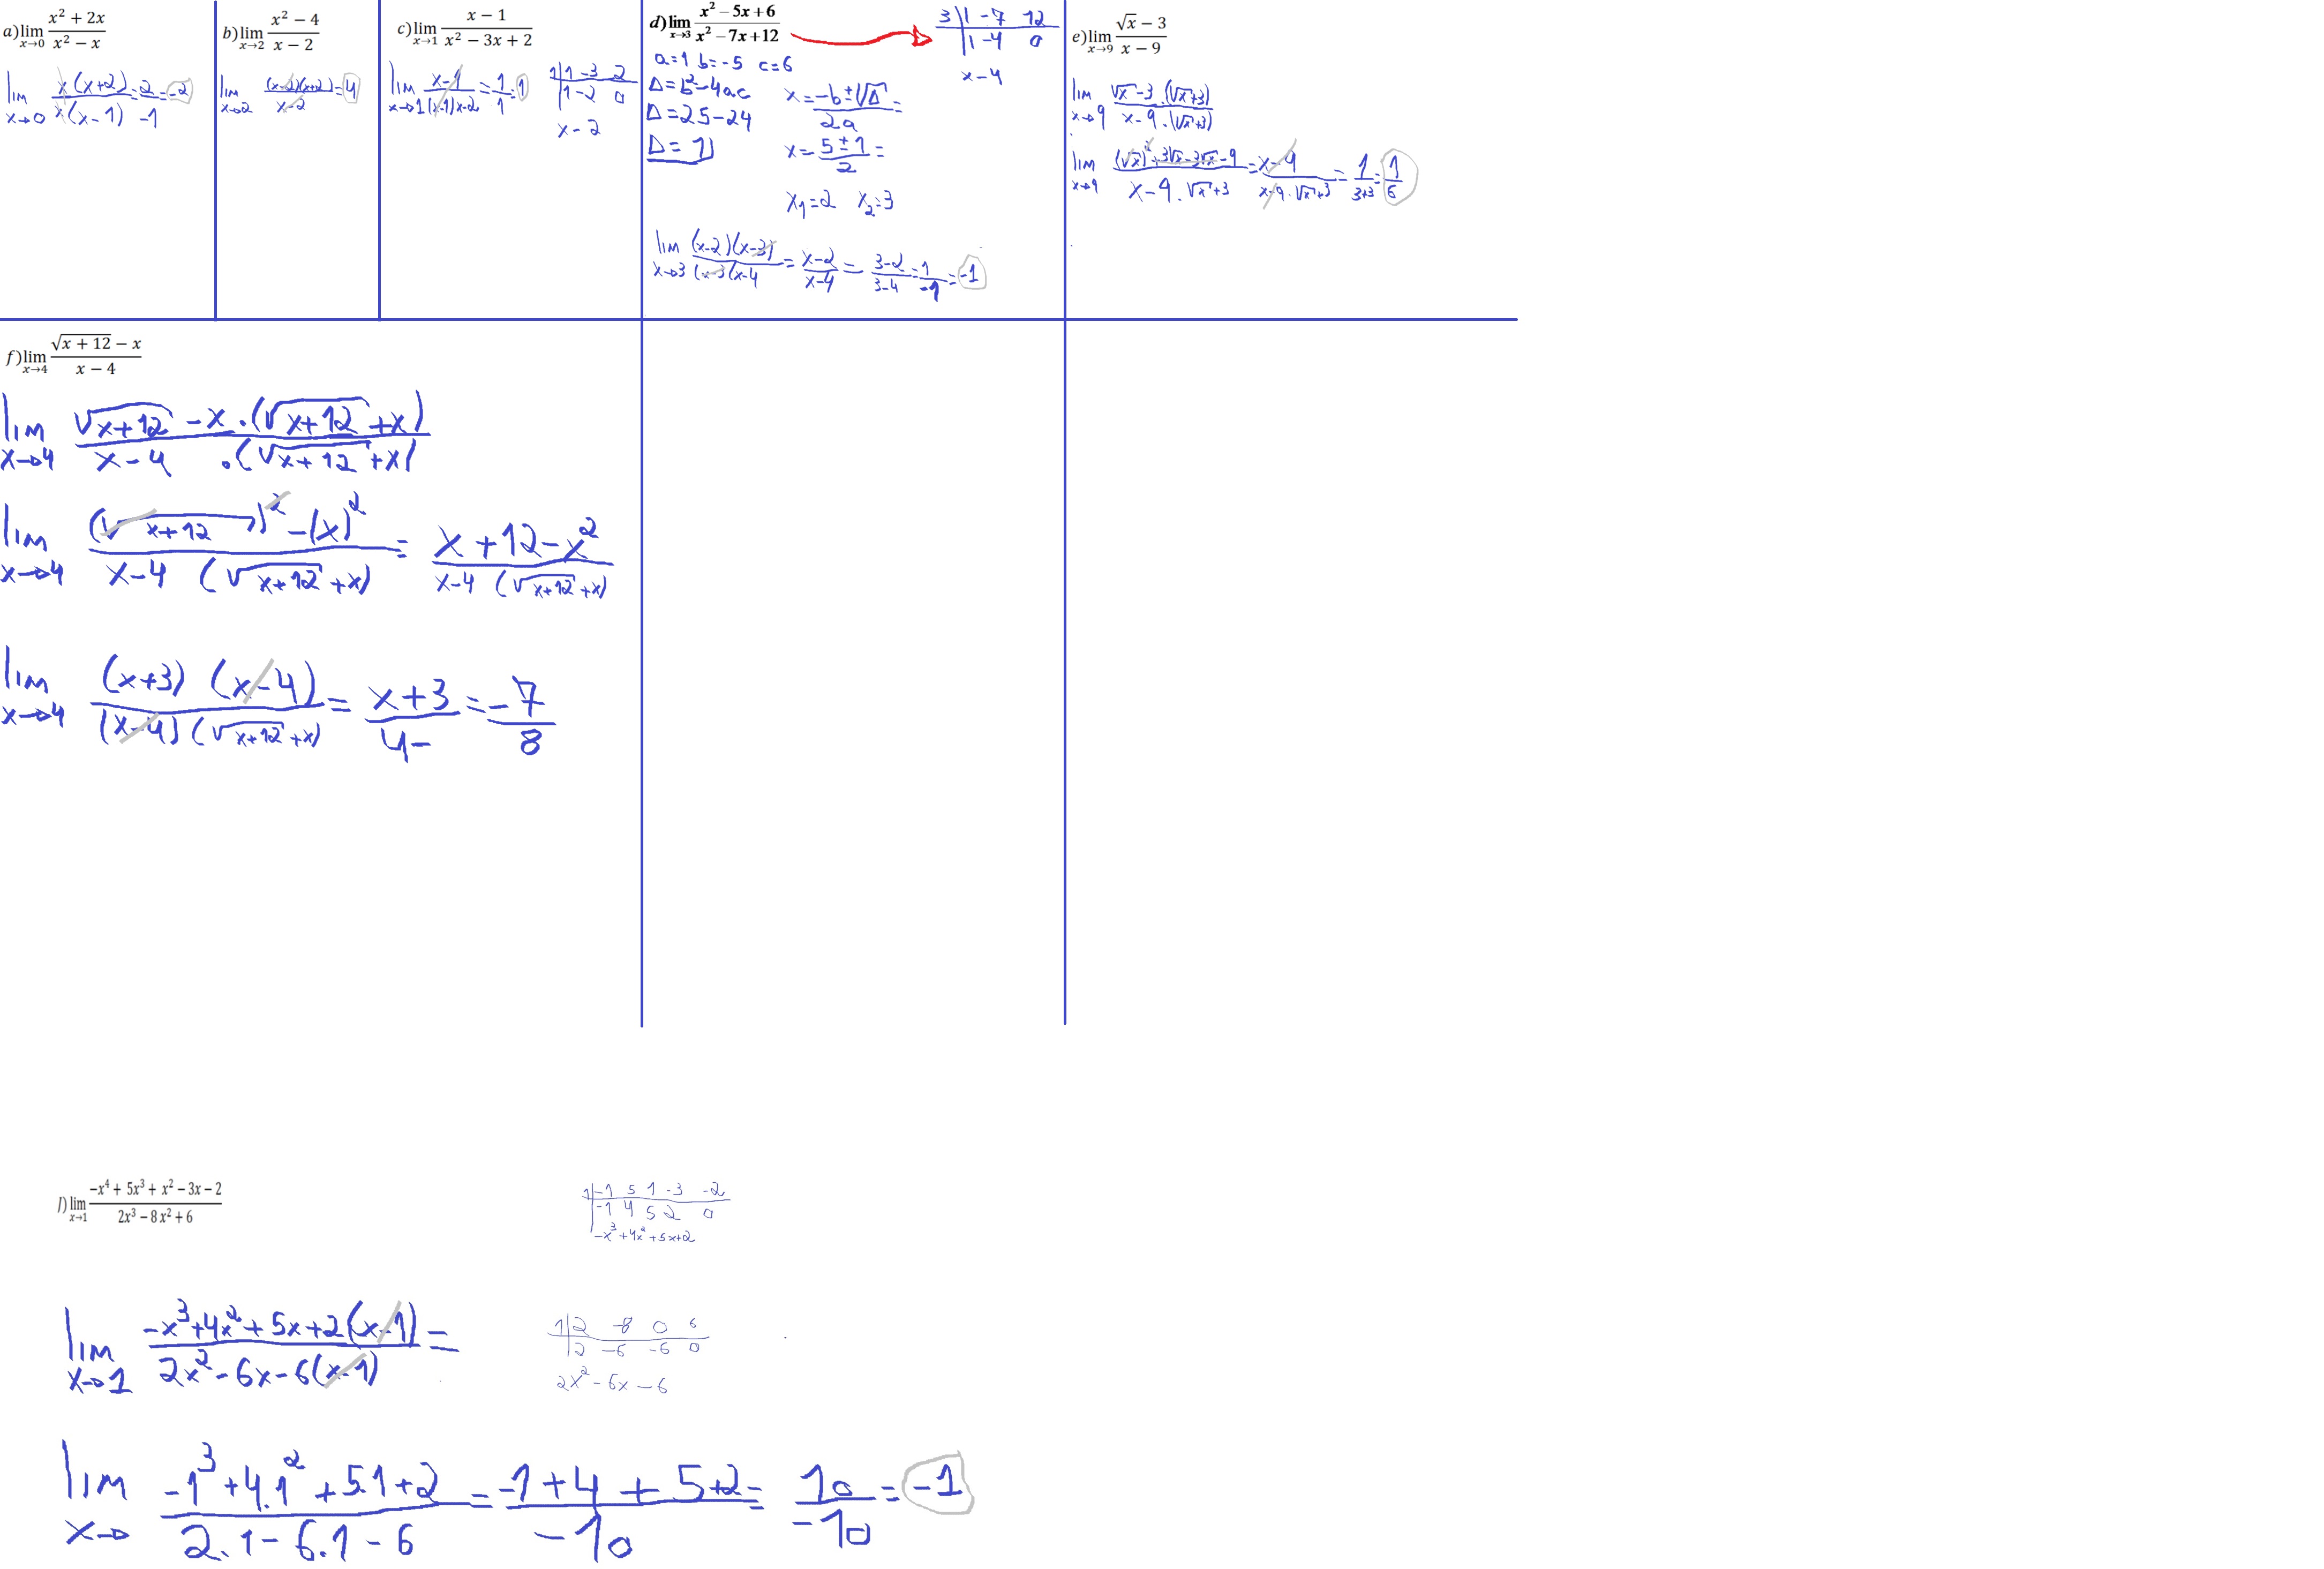 a) lim x→0 (x² + 2x)/(x² − x)
lim x→0 x(x+2)/x(x−1) = 2/−1 = −2
b) lim x→2 (x² − 4)/(x − 2)
lim x→2 (x−2)(x+2)/x−2 = 4
c) lim x→1 (x − 1)/(x² − 3x + 2)
lim x→1 x−1/(x−1)x−2 = 1/1 = 1
1 | 1 −3 2
| 1 −2 0
x − 2
d) lim x→3 (x² − 5x + 6)/(x² − 7x + 12)
a=1 b=−5 c=6
Δ=b²−4ac
Δ=25−24
Δ=1
x = −b±√Δ/2a =
x = 5±1/2 =
x₁=2 x₂=3
lim x→3 (x−2)(x−3)/(x−3(x−4 = x−2/x−4 = 3−2/3−4 = 1/−1 = −1
3 | 1 −7 12
| 1 −4 0
x−4
e) lim x→9 (√x − 3)/(x − 9)
lim x→9 √x−3 .(√x+3)/x−9 .(√x+3)
lim x→9 (√x)²+3√x−3√x−9/x−9 . √x+3 = x−9/x−9 . √x+3 = 1/3+3 = 1/6
f) lim x→4 (√(x + 12) − x)/(x − 4)
lim x→4 √(x+12) −x .(√(x+12) +x)/x−4 .(√(x+12) +x)
lim x→4 (√(x+12))² −(x)²/x−4 (√(x+12) +x) = x+12−x²/x−4 (√(x+12) +x)
lim x→4 (x+3) (x−4)/(x−4) (√(x+12) +x) = x+3/4− = −7/8
l) lim x→1 (−x⁴ + 5x³ + x² − 3x − 2)/(2x³ − 8x² + 6)
1 | −1 5 1 −3 −2
| −1 4 5 2 0
−x³+4x²+5x+2
lim x→1 −x³+4x²+5x+2(x−1)/2x²−6x−6(x−1) =
1 | 2 −8 0 6
| 2 −6 −6 0
2x²−6x−6
lim x→ −1³+4.1²+5.1+2/2.1−6.1−6 = −1+4+5+2/−10 = 10/−10 = −1